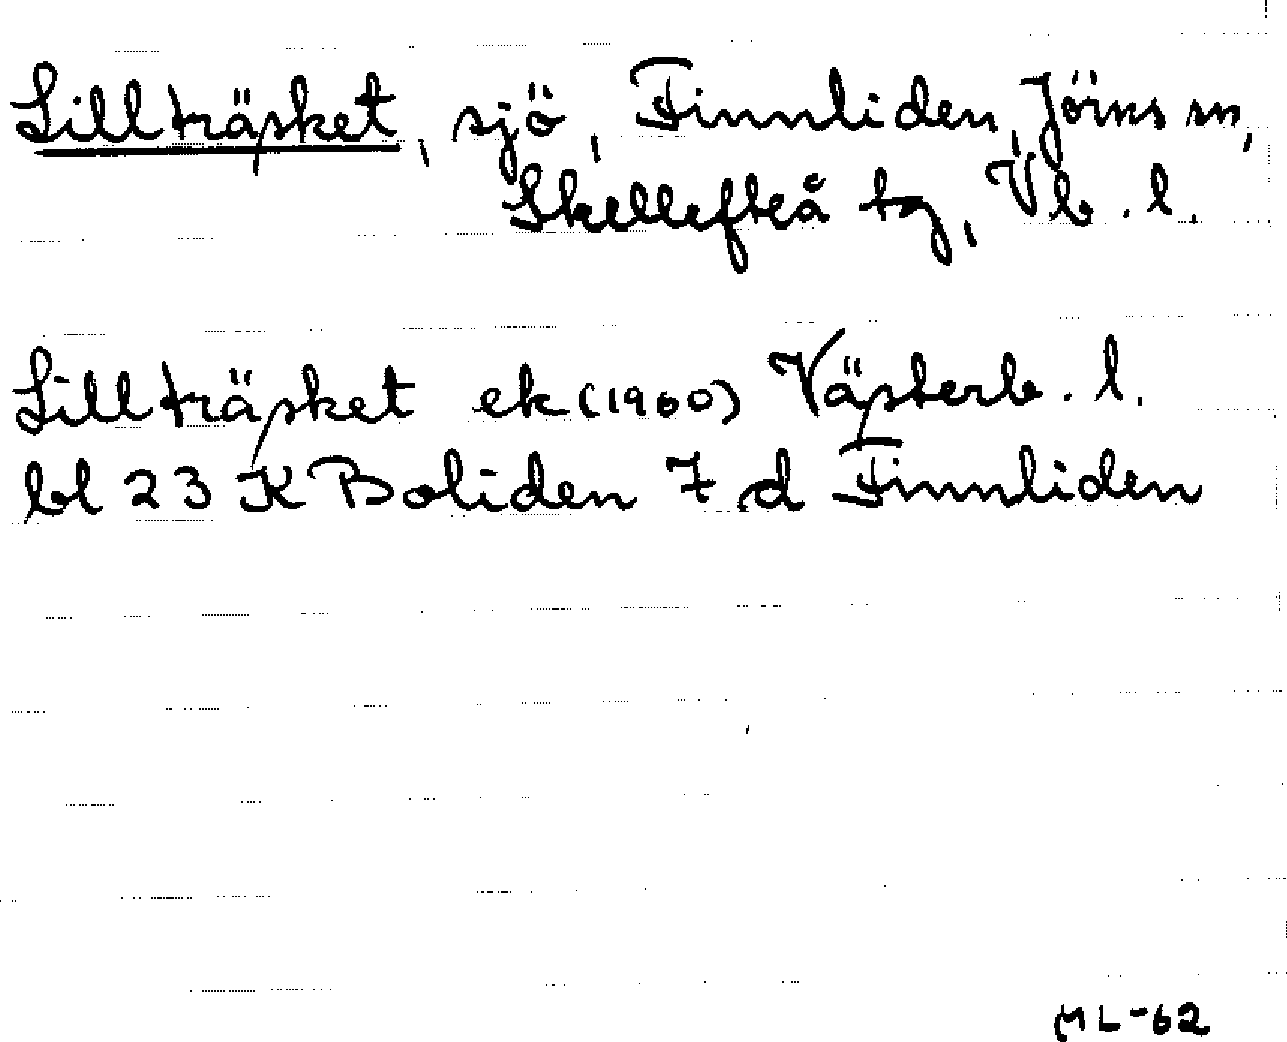 Lillträsket, sjö, Finnliden, Jörns sn,
Skellefteå tg, Vb. l.
Lillträsket ek (1960) Västerb. l.
bl 23 K Boliden 7 d Finnliden
ML-62